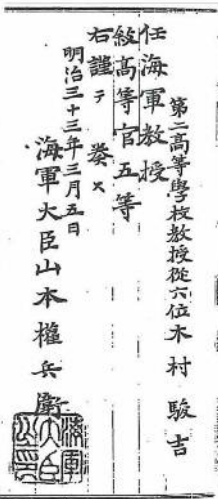 第二高等學校教授從六位木村駿吉
任海軍教授
敍高等官五等
右謹テ奏ス
明治三十三年三月五日
海軍大臣山本權兵衞
海軍大臣之印